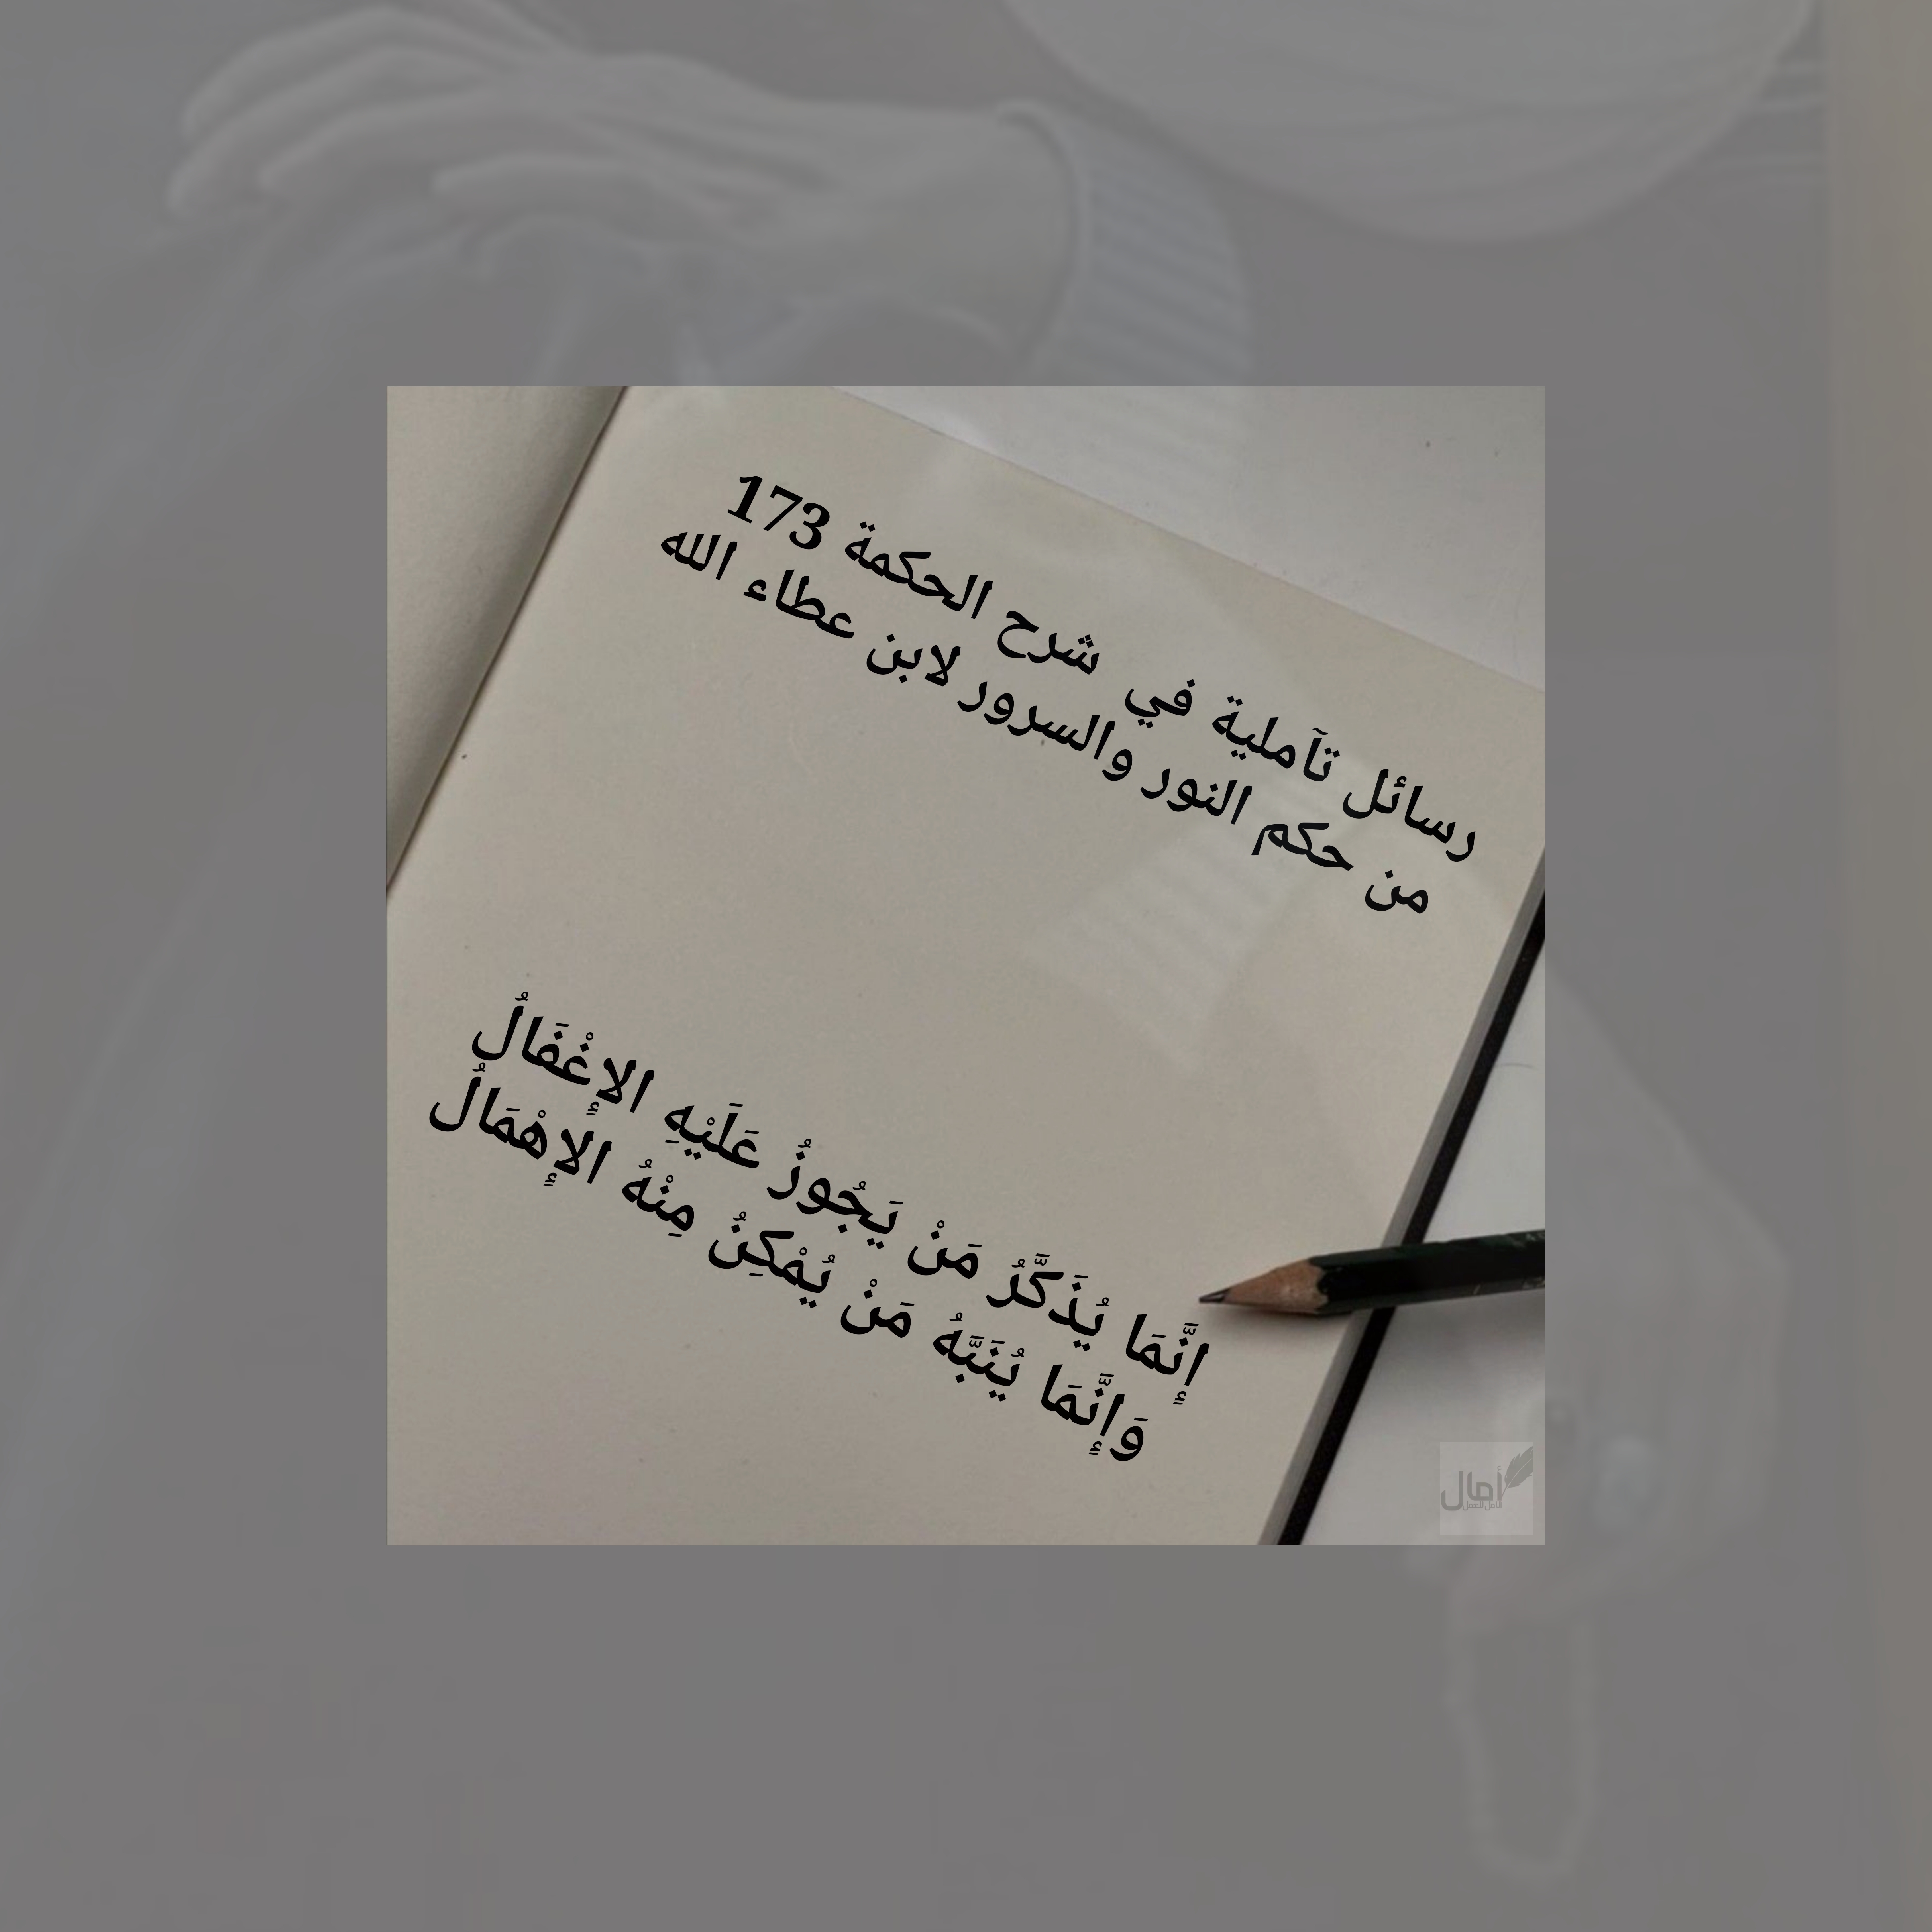 رسائل تآملية في شرح الحكمة 173
من حكم النور والسرور لابن عطاء الله
إِنَّمَا يُذَكَّرُ مَنْ يَجُوزُ عَلَيْهِ الإِغْفَالُ
وَإِنَّمَا يُنَبَّهُ مَنْ يُمْكِنُ مِنْهُ الإِهْمَالُ
أمال